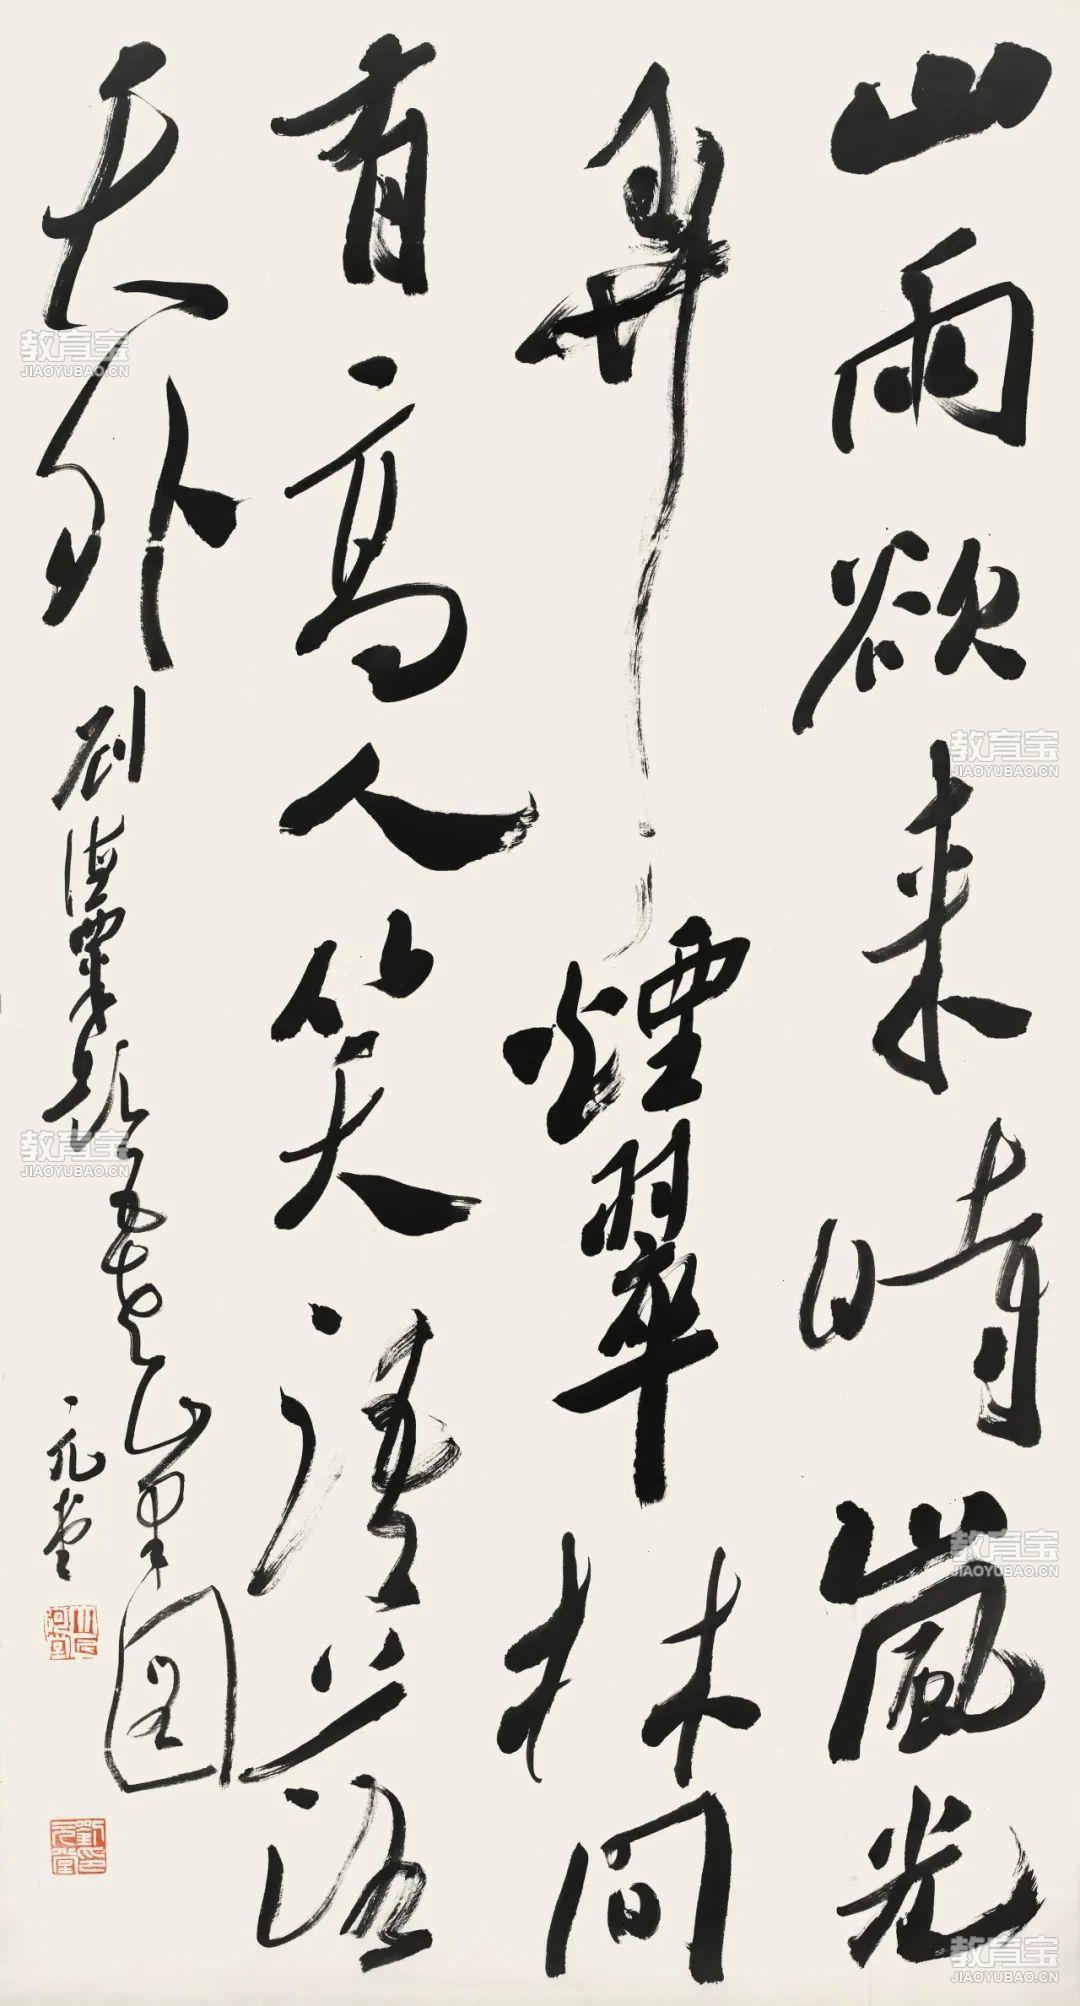 山雨欲来時嵐光
煙翠林間
有高人笑語落
天外
刘海粟題 山 图
元堂
教育宝
JIAOYUBAO.CN
教育宝
JIAOYUBAO.CN
教育宝
JIAOYUBAO.CN
教育宝
JIAOYUBAO.CN
教育宝
JIAOYUBAO.CN